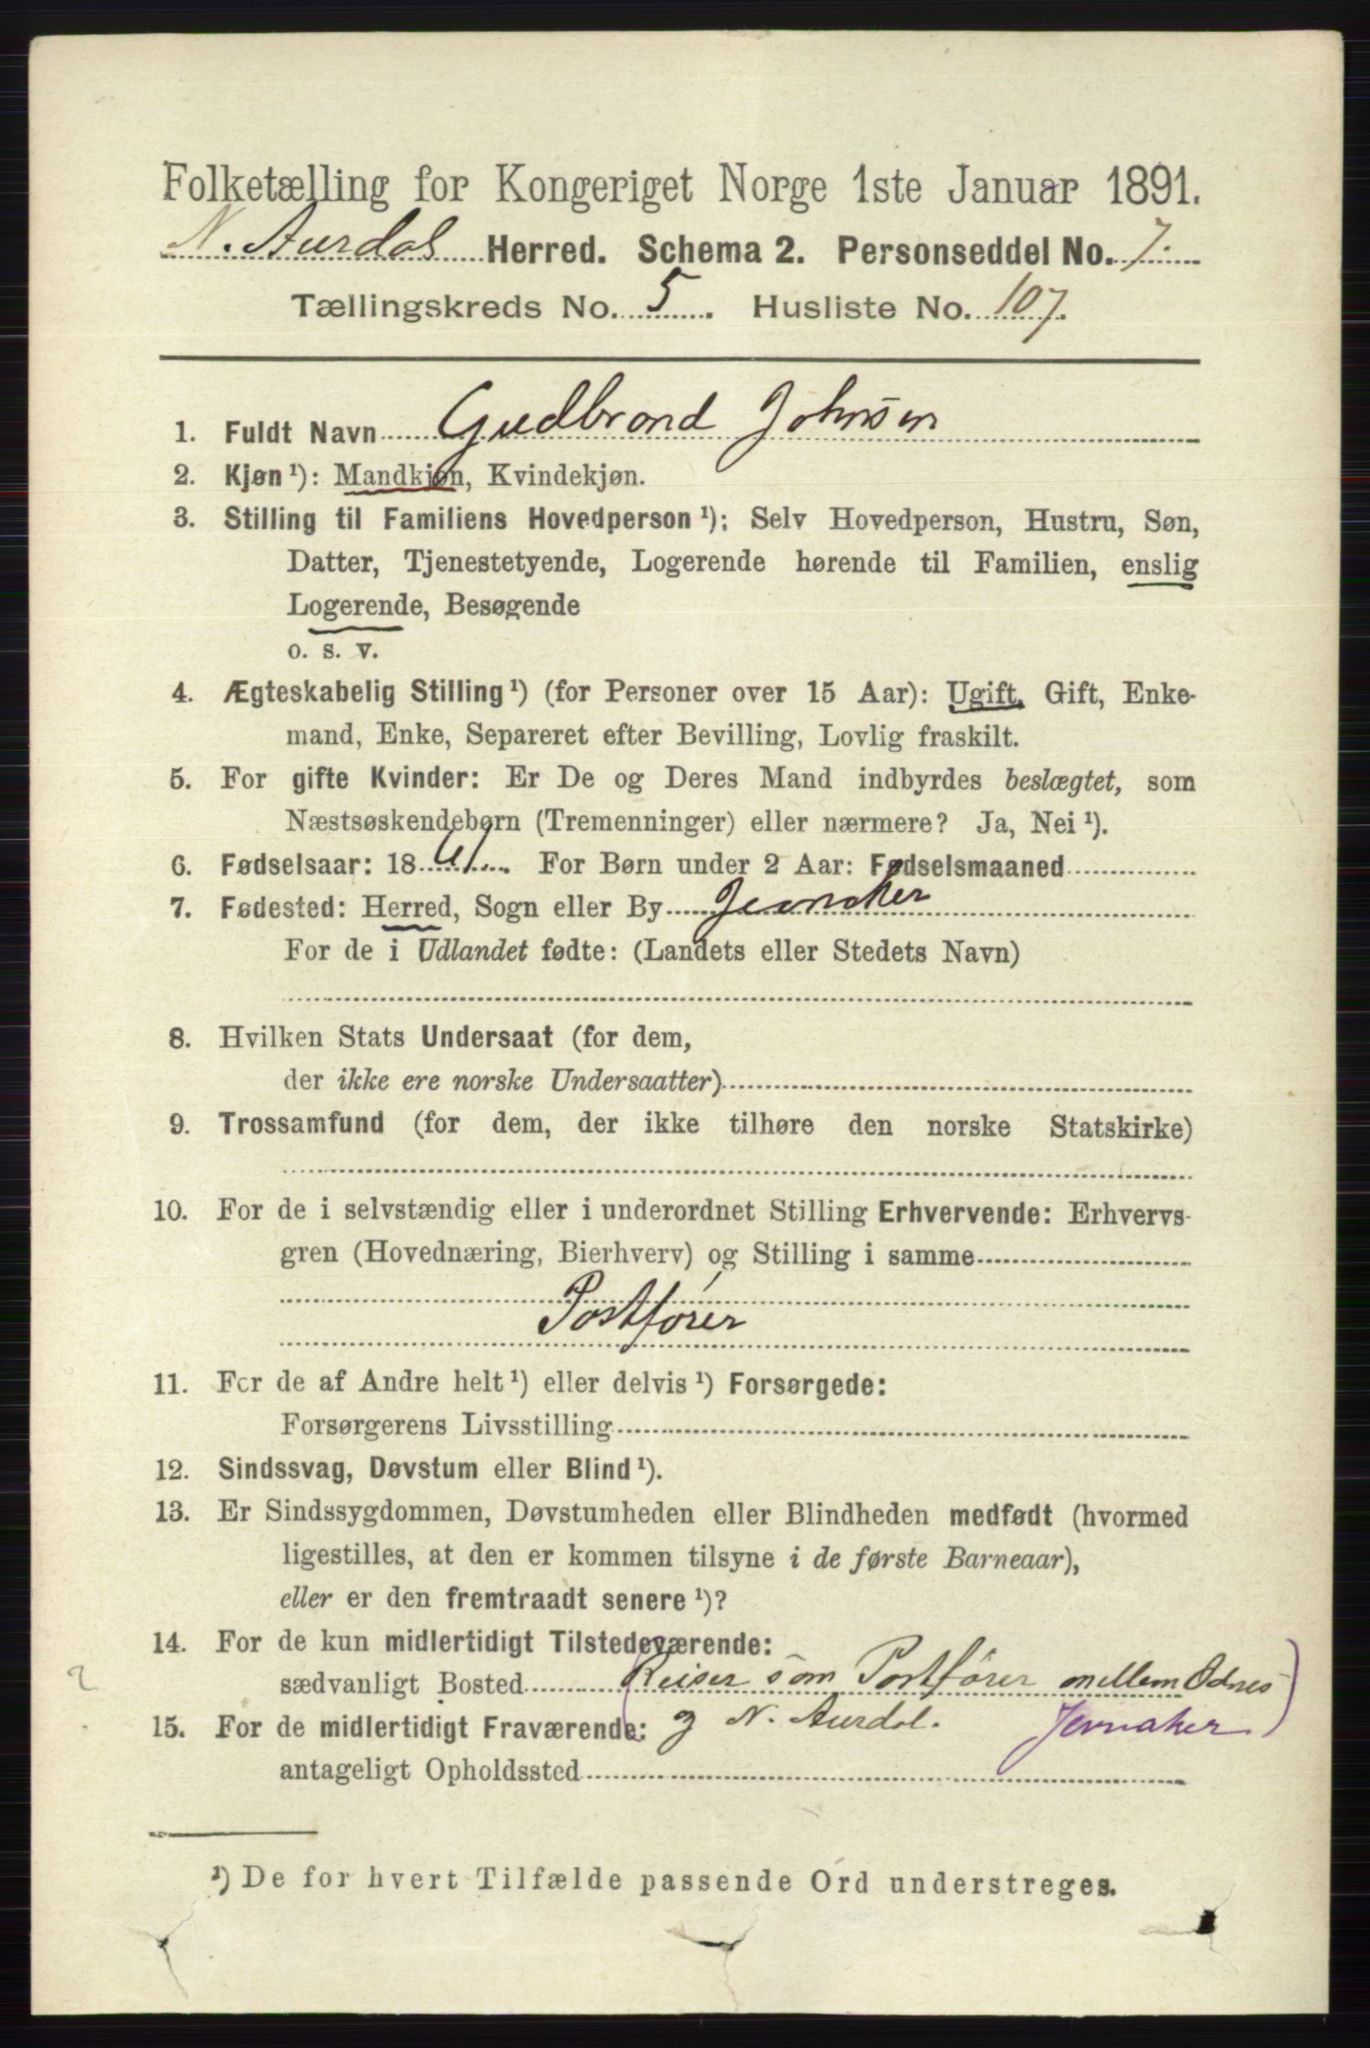 Folketælling for Kongeriget Norge 1ste Januar 1891.
N. Aurdal Herred. Schema 2. Personseddel No. 7.
Tællingskreds No. 5. Husliste No. 107.
1. Fuldt Navn Gudbrand Johnsen
2. Kjøn ¹): Mandkjøn, Kvindekjøn.
3. Stilling til Familiens Hovedperson ¹): Selv Hovedperson, Hustru, Søn,
Datter, Tjenestetyende, Logerende hørende til Familien, enslig
Logerende, Besøgende
o. s. v.
4. Ægteskabelig Stilling ¹) (for Personer over 15 Aar): Ugift, Gift, Enke-
mand, Enke, Separeret efter Bevilling, Lovlig fraskilt.
5. For gifte Kvinder: Er De og Deres Mand indbyrdes beslægtet, som
Næstsøskendebørn (Tremenninger) eller nærmere? Ja, Nei ¹).
6. Fødselsaar: 1861. For Børn under 2 Aar: Fødselsmaaned
7. Fødested: Herred, Sogn eller By Jevnaker
For de i Udlandet fødte: (Landets eller Stedets Navn)
8. Hvilken Stats Undersaat (for dem,
der ikke ere norske Undersaatter)
9. Trossamfund (for dem, der ikke tilhøre den norske Statskirke)
10. For de i selvstændig eller i underordnet Stilling Erhvervende: Erhvervs-
gren (Hovednæring, Bierhverv) og Stilling i samme
Postfører
11. For de af Andre helt ¹) eller delvis ¹) Forsørgede:
Forsørgerens Livsstilling
12. Sindssvag, Døvstum eller Blind ¹).
13. Er Sindssygdommen, Døvstumheden eller Blindheden medfødt (hvormed
ligestilles, at den er kommen tilsyne i de første Barneaar),
eller er den fremtraadt senere ¹)?
14. For de kun midlertidigt Tilstedeværende:
sædvanligt Bosted (Reiser som Postfører mellem Odnes
15. For de midlertidigt Fraværende: og N. Aurdal. Jevnaker)
antageligt Opholdssted
¹) De for hvert Tilfælde passende Ord understreges.